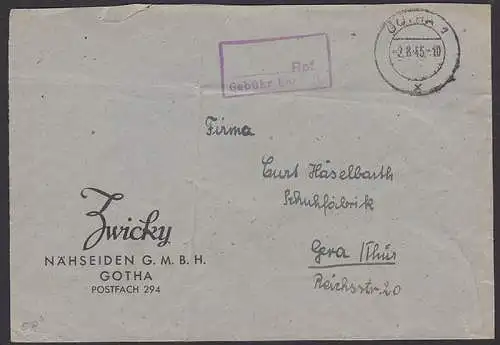 GOTHA 1
-2.8.45.-10
x
Gebühr
Firma
Curt Häselbarth
Schuhfabrik
Gera / Thür
Reichsstr. 20
Zwicky
NÄHSEIDEN G. M. B. H.
GOTHA
POSTFACH 294